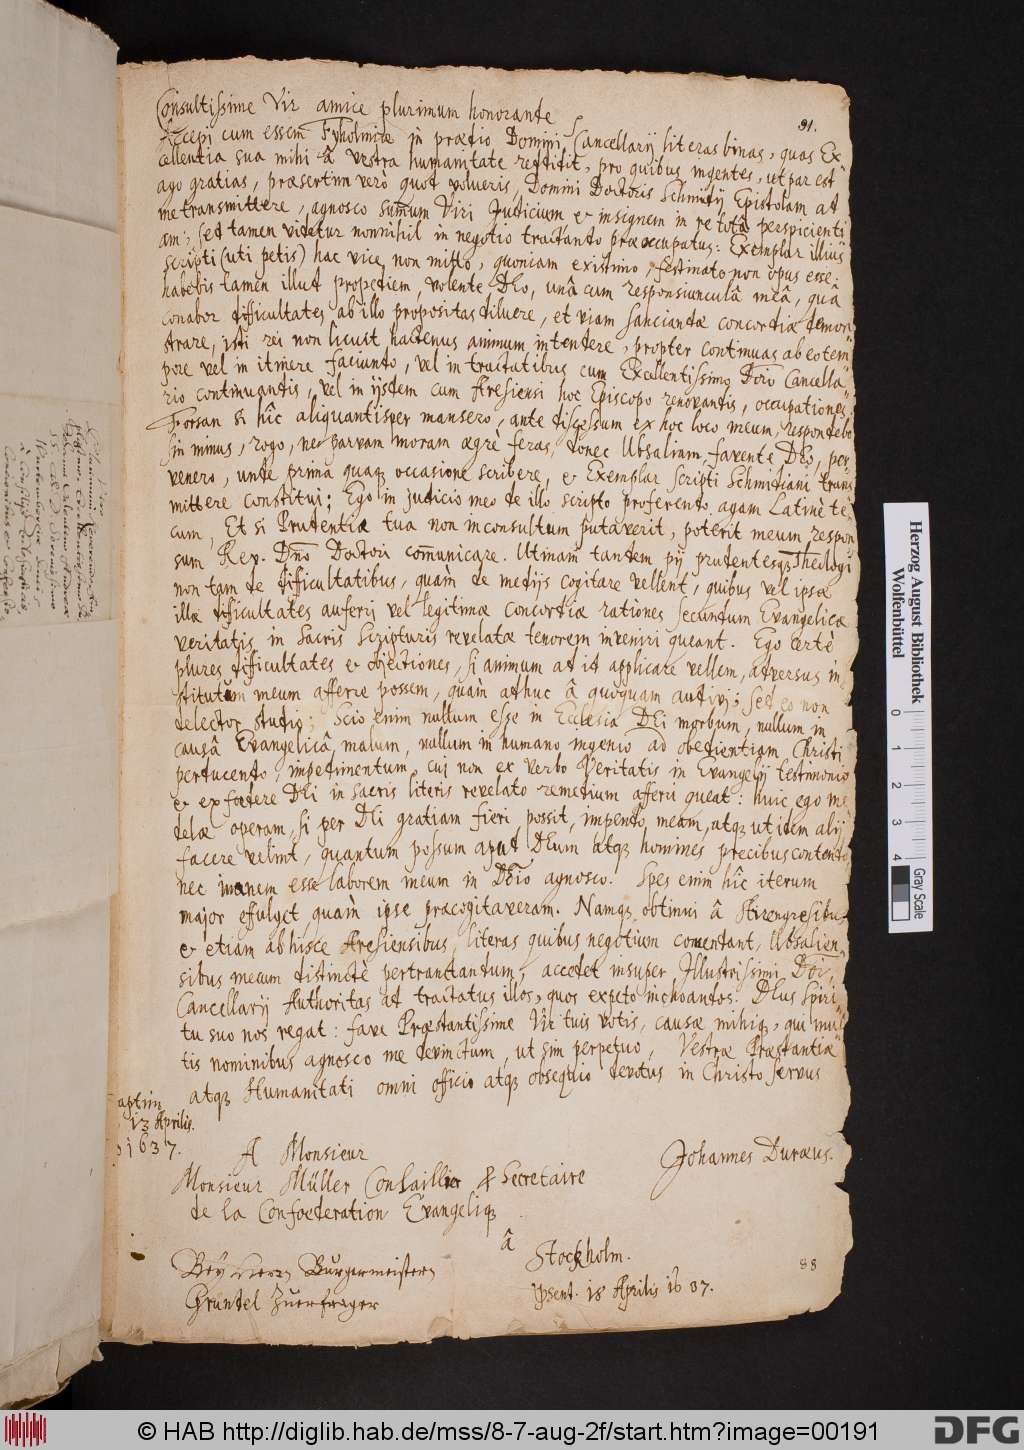 91.
Consultissime Vir amice plurimum honorande
Accepi cum essem Fyholmiæ in prædio Domini Cancellarij literas binas, quas Ex-
cellentia sua mihi â vestra humanitate reddidit, pro quibus ingentes, ut par est
ago gratias, præsertim verò quod volueris Domini Doctoris Schmidij Epistolam ad
me transmittere, agnosco summum Viri Judicium & insignem in re totâ perspicienti
am, sed tamen videtur nonnihil in negotio tractando præoccupatus: Exemplar illius
scripti (uti petis) hac vice non mitto, quoniam existimo, festinato non opus esse:
habebis tamen illud propediem, volente DEo, unâ cum responsiunculâ meâ, quâ
conabor difficultates ab illo propositas diluere, et viam sanciendæ concordiæ demon-
strare, isti rei non licuit hactenus animum intendere, propter continuas ab eo tem-
pore vel in itinere faciundo, vel in tractatibus cum Excellentissimo Dño Cancella-
rio continuandis, vel in ijsdem cum Arosiensi hoc Episcopo renovandis, occupationes.
Forsan si hîc aliquantisper mansero, ante discessum ex hoc loco meum, respondebo
sin minus, rogo, ne parvam moram ægrè feras, donec Ubsaliam, favente DEo, per-
venero, unde prima quaq; occasione scribere, & Exemplar scripti Schmidiani trans
mittere constitui; Ego in judicio meo de illo scripto proferendo, agam Latinè te-
cum, Et si Prudentiæ tua non inconsultum putaverit, poterit meum respon
sum Rev. Dño Doctori communicare. Utinam tandem pij prudentesq; Theologi
non tam de difficultatibus, quàm de medijs cogitare vellent, quibus vel ipsæ
illæ difficultates auferri vel legitimæ concordiæ rationes secundum Evangelicæ
veritatis in Sacris Scripturis revelatæ tenorem inveniri queant. Ego certè
plures difficultates & objectiones, si animum ad id applicare vellem, adversus in-
stitutum meum afferre possem, quàm adhuc â quoquam audivi; sed eo non
delector studio; Scio enim nullum esse in Ecclesia DEi morbum, nullum in
causâ Evangelicâ malum, nullum in humano ingenio ad obedientiam Christi
perducendo, impedimentum cui non ex verbo Veritatis in Evangelij testimonio
& ex fœdere DEi in sacris literis revelato remedium afferri queat: huic ego me
delæ operam, si per DEi gratiam fieri possit, impendo meam, atq; ut idem alij
facere velint, quantum possum apud DEum atq; homines precibus contendo
nec inanem esse laborem meum in Dño agnosco. Spes enim hîc iterum
major effulget quàm ipse præcogitaveram. Namq; obtinui â Strengnesibus
& etiam ab hisce Arosiensibus, literas quibus negotium comendant, Ubsalien-
sibus mecum distinctè pertractandum, accedet insuper Illustrissimi Dñi
Cancellarij Authoritas ad tractatus illos, quos expeto inchoandos. DEus Spiri-
tu suo nos regat: fave Præstantissime Vir tuis votis, causæ mihiq;, qui mul-
tis nominibus agnosco me devinctum, ut sim perpetuo, Vestræ Præstantiæ
atq; Humanitati omni officio atq; obsequio devotus in Christo servus
raptim
13 Aprilis.
1637.
Johannes Duræus.
A Monsieur
Monsieur Müller Consaillier & Secretaire
de la Confœderation Evangeliq;
â
Stockholm.
Bey Herrn Bürgermeistern
Grundel Zuerfrager
psent. 18 Aprilis 1637.
88
Herzog August Bibliothek
Wolfenbüttel
0 1 2 3 4
Gray Scale
© HAB http://diglib.hab.de/mss/8-7-aug-2f/start.htm?image=00191
DFG